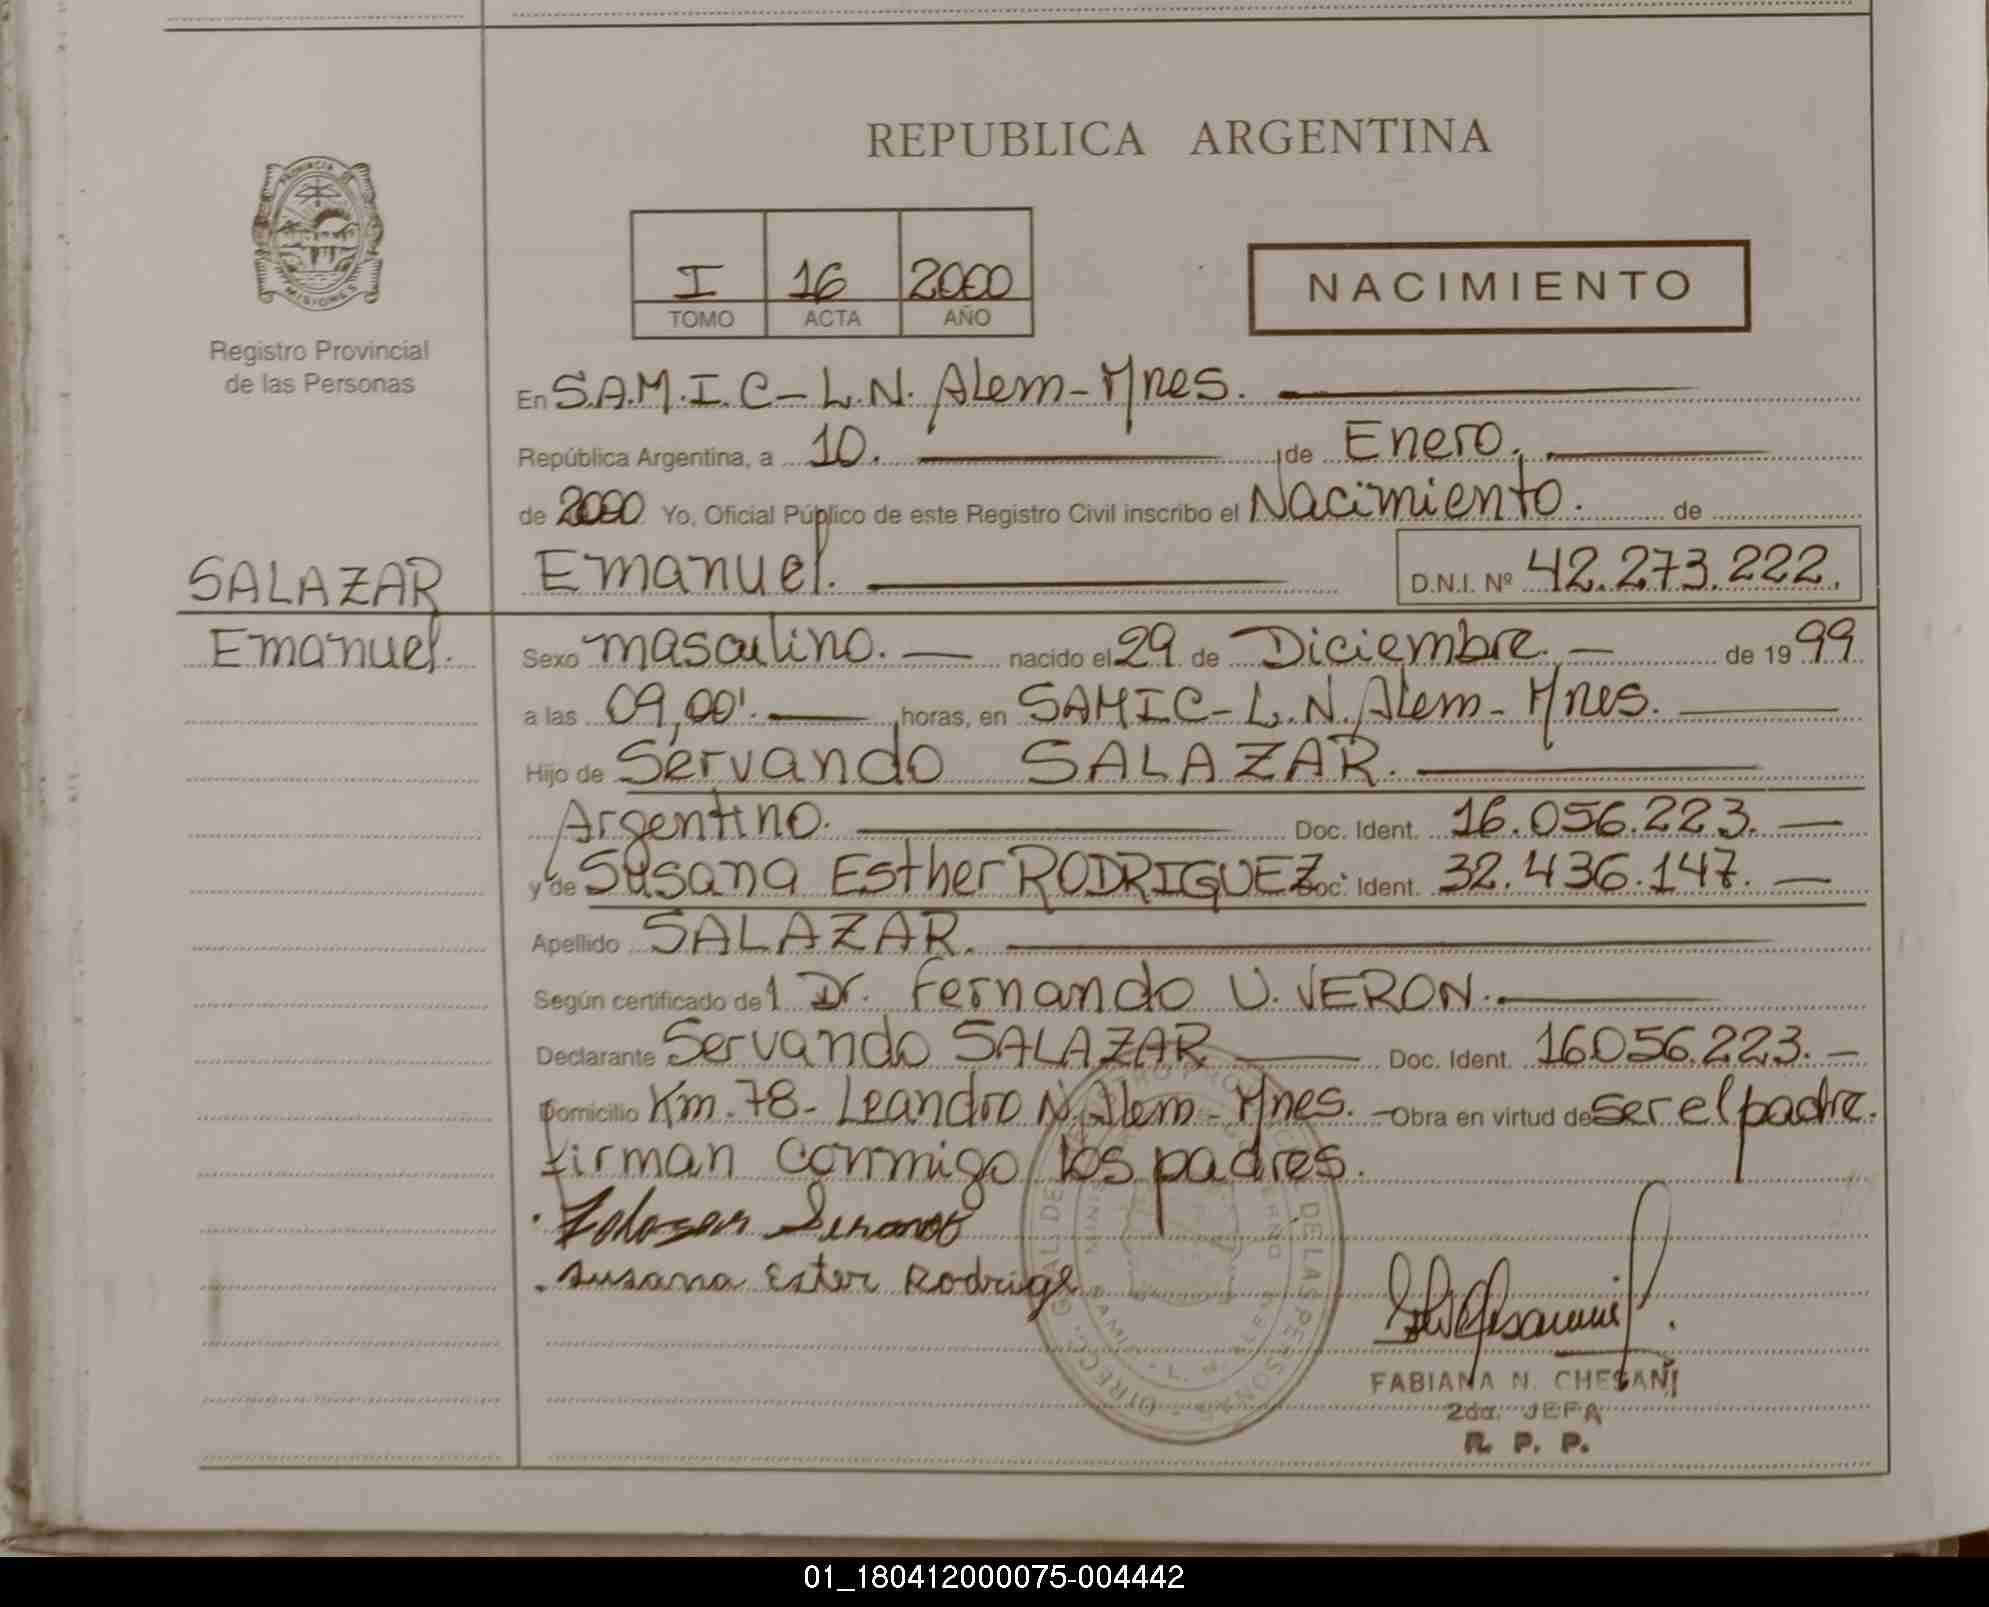 REPUBLICA ARGENTINA
PROVINCIA DE
MISIONES
Registro Provincial
de las Personas
I 16 2000
TOMO ACTA AÑO
NACIMIENTO
En S.A.M.I.C - L.N. Alem - Mnes.
República Argentina, a 10. de Enero.
de 2000 Yo, Oficial Público de este Registro Civil inscribo el Nacimiento. de
Emanuel. D.N.I. Nº 42.273.222.
SALAZAR
Emanuel.
Sexo masculino. nacido el 29 de Diciembre. de 1999
a las 09,00'. horas, en SAMIC - L.N. Alem - Mnes.
Hijo de Servando SALAZAR.
Argentino. Doc. Ident. 16.056.223.
y de Susana Esther RODRIGUEZ Doc. Ident. 32.436.147.
Apellido SALAZAR.
Según certificado de 1 Dr. Fernando U. VERON.
Declarante Servando SALAZAR Doc. Ident. 16.056.223.
Domicilio Km. 78 - Leandro N. Alem - Mnes. Obra en virtud de ser el padre.
firman conmigo los padres.
Susana Ester Rodrige
FABIANA N. CHESANI
2da. JEFA
R. P. P.
01_180412000075-004442